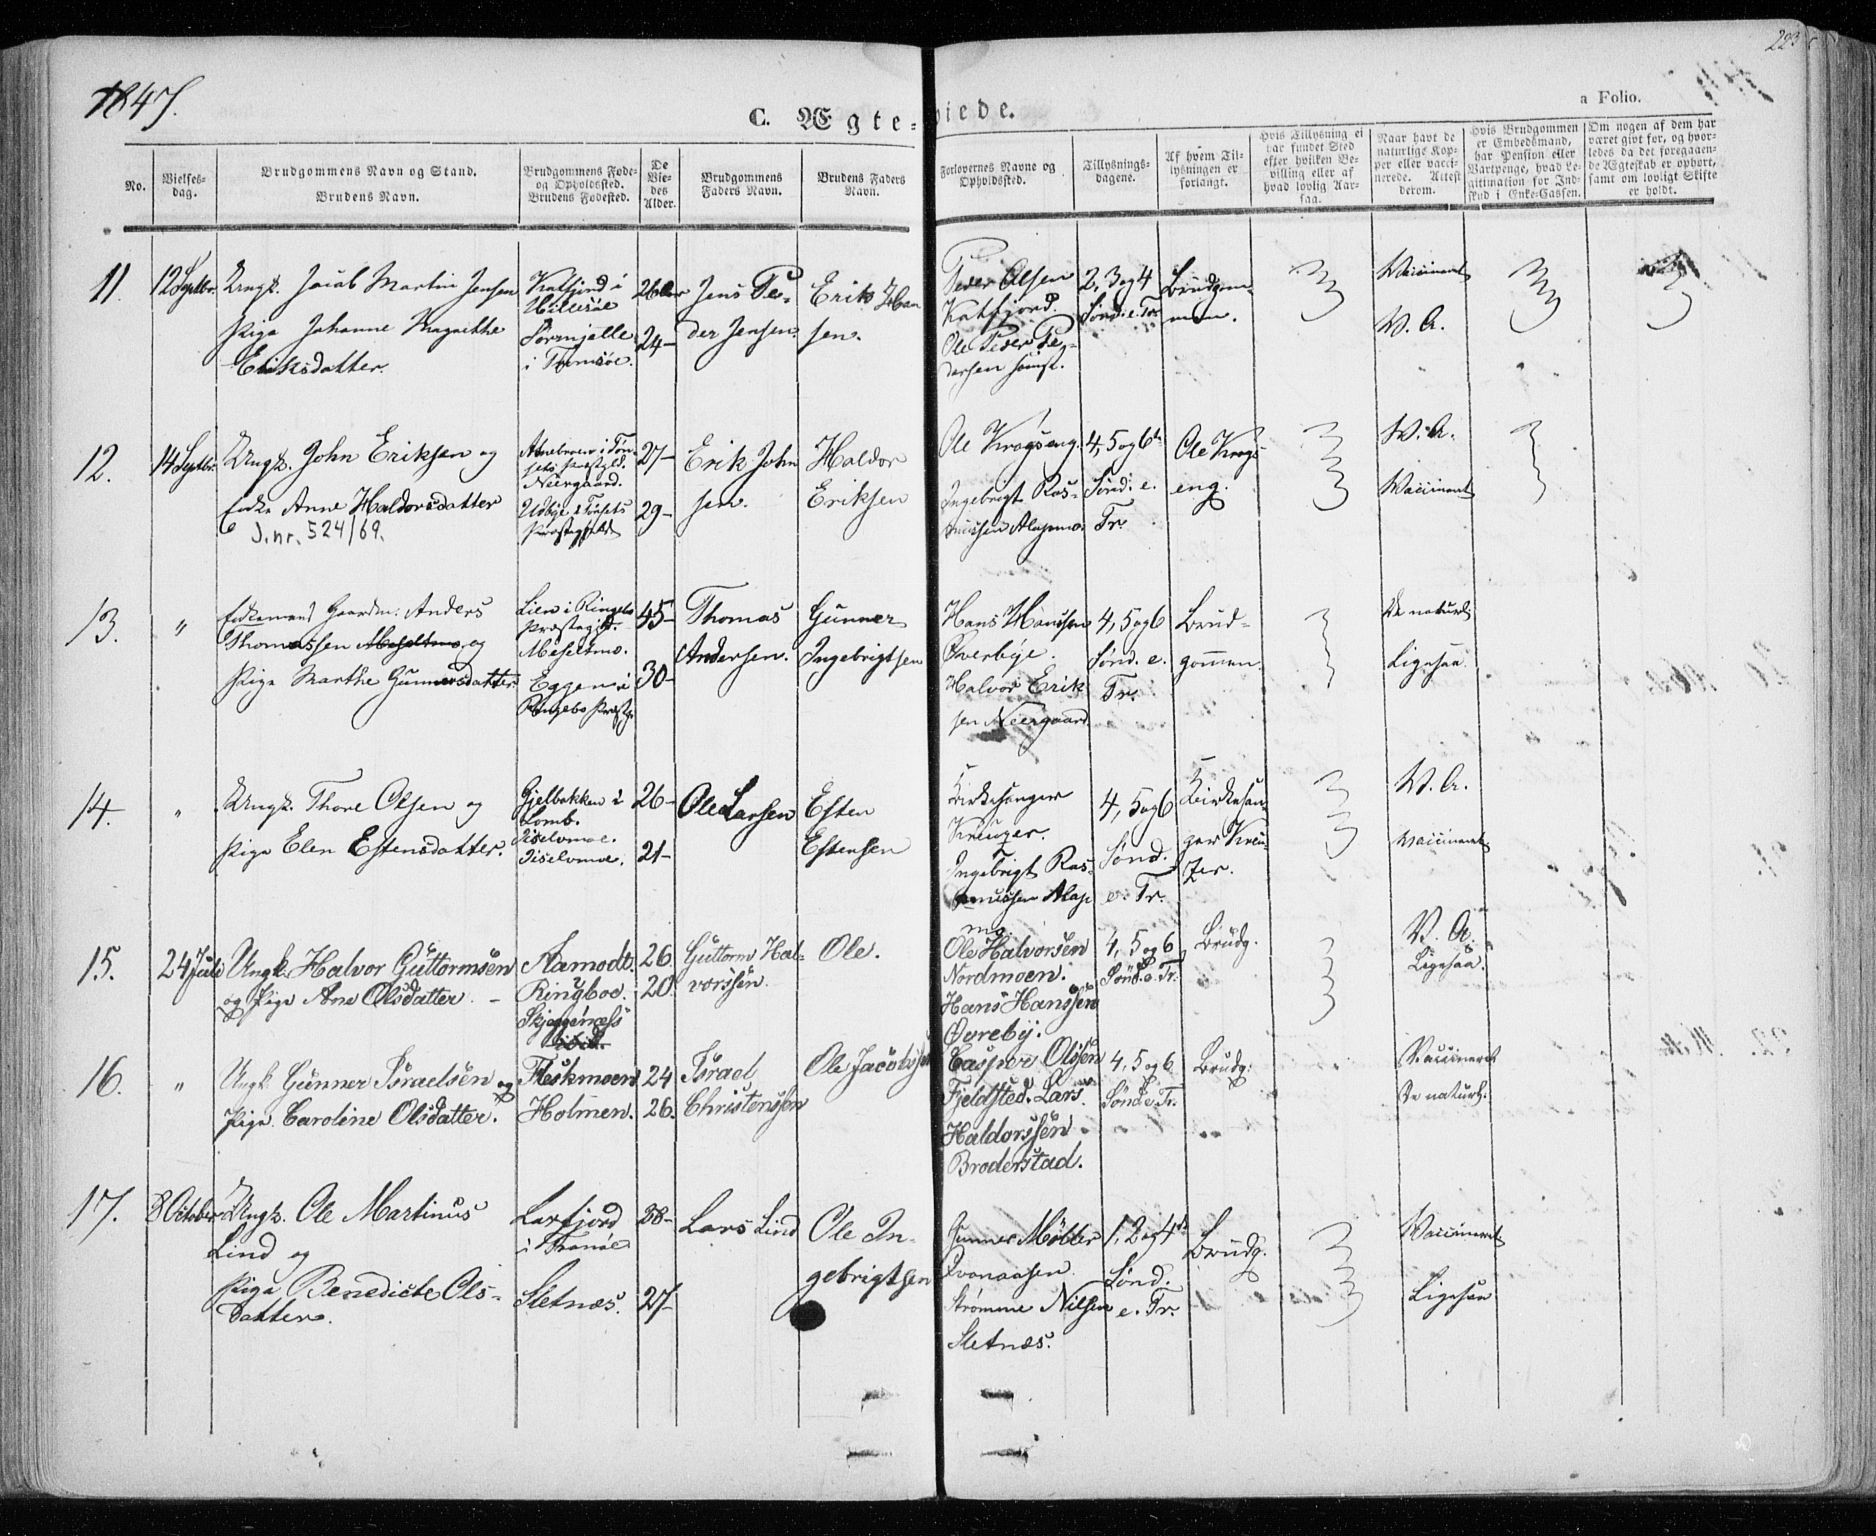 1847.
C. Ægte-viede.
a Folio.
223
No.
Vielses-dag.
Brudgommens Navn og Stand.
Brudens Navn.
Brudgommens Føde- og Opholdssted.
Brudens Fødested.
De Viedes Alder.
Brudgommens Faders Navn.
Brudens Faders Navn.
Forlovernes Navne og Opholdssted.
Tillysnings-dagene.
Af hvem Tillysningen er forlangt.
Hvis Tillysning ei har fundet Sted efter hvilken Bevilling eller af hvad lovlig Aarsaa.
Naar havt de naturlige Kopper eller vaccinerede. Attest derom.
Hvis Brudgommen er Embedsmand, har Pension eller Vartpenge, hvad Legitimation for Indskud i Enke-Cassen.
Om nogen af dem har været givt før, og hvorledes da det foregaaende Ægteskab er ophørt, samt om lovligt Skifte er holdt.
11. 12 Septbr. Ungk. Jacob Martin Jensen
Pige Johanne Magrethe
Eriksdatter.
Katfjord i
Hillesøe
i Tromsøe.
26 Aar
24-
Jens Pe-
der Jensen.
Erik Han
sen.
Peder Olsen
Katfjord.
Ole Peder Pe-
dersen samst.
2, 3 og 4
Sønd. e. Tr.
Brudgom-
men.
Vaccineret
V. A.
12. 14 Septbr. Ungk. John Eriksen og
Enke Anne Haldorsdatter
J.nr. 524/69.
i Tøn-
sets Præstgld.
Neergaard.
Udbye i Tønsets
Præstegjeld
27-
29-
Erik John
sen.
Haldor
Eriksen
Ole Kragseng.
Ingebrigt Ras-
mussen Alapmo.
4, 5 og 6te
Sønd. e.
Tr.
Ole Krags
eng.
V. A.
Vaccineret
13. " Enkemand Gaardm. Anders
Thomassen og
Pige Marthe Gunnersdatter
Lien i Ringebo
Præstegjd.
Meseltmo.
Eggen i
Ringebo Præstg.
45-
30-
Thomas
Andersen.
Gunner
Ingebrigtsen
Hans Hansen
Øverbye.
Halvor Erik
sen Neergaard.
4, 5 og 6
Sønd. e.
Tr.
Brud-
gommen.
De naturl.
Ligesaa
14. " Ungk. Thore Olsen og
Pige Elen Estensdatter.
Gjelbakken i
Lomb.
26-
21-
Ole Larsen
Esten
Estensen
Kirkesanger
Kreuzer.
Ingebrigt Ras-
mussen Alap
mo.
4, 5 og 6
Sønd.
e. Tr.
Kirkesan-
ger Kreu-
zer.
V. A.
Vaccineret
15. 24 Juli Ungk. Halvor Guttormsen
og Pige Ane Olsdatter. -
Aamodt.
Ringboe.
Skjeggenæss
26.
20.
Guttorm Hal-
vorssen.
Ole.
Ole Halvorsen
Nordmoen.
Hans Hanssen
Øvreby.
4, 5 og 6
Sønd. e. Tr.
Brudg.
V. A.
Ligesaa.
16. " Ungk. Gunner Israelsen og
Pige Caroline Olsdatter.
Fleskmoen
Holmen.
24
26.
Israel
Christenssen
Ole Jacobsen
Casper Olssen
Fjeldsted. Lars
Haldorssen
Broderstad.
4, 5 og 6
Sønd. e. Tr.
Brudg.
Vaccineret
De naturl.
17. 8 October Ungk. Ole Martinus
Lind og
Pige Benedicte Ols-
datter.
Laxfjord
i Tranøe
Sletnæs.
38-
27-
Lars Lind
Ole In-
gebrigtsen
Gunner Møller
Strømme Nilsen
Sletnæs.
1, 2 og 4de
Sønd.
e. Tr.
Brudg.
Vaccineret
Ligesaa